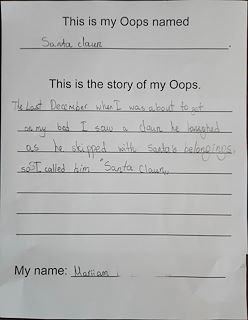 This is my Oops named
Santa claun.
This is the story of my Oops.
The Last December when I was about to get
on my bed I saw a claun he laughed
as he skipped with santa's belongings.
so I called him "Santa Claun,
My name: Mariam